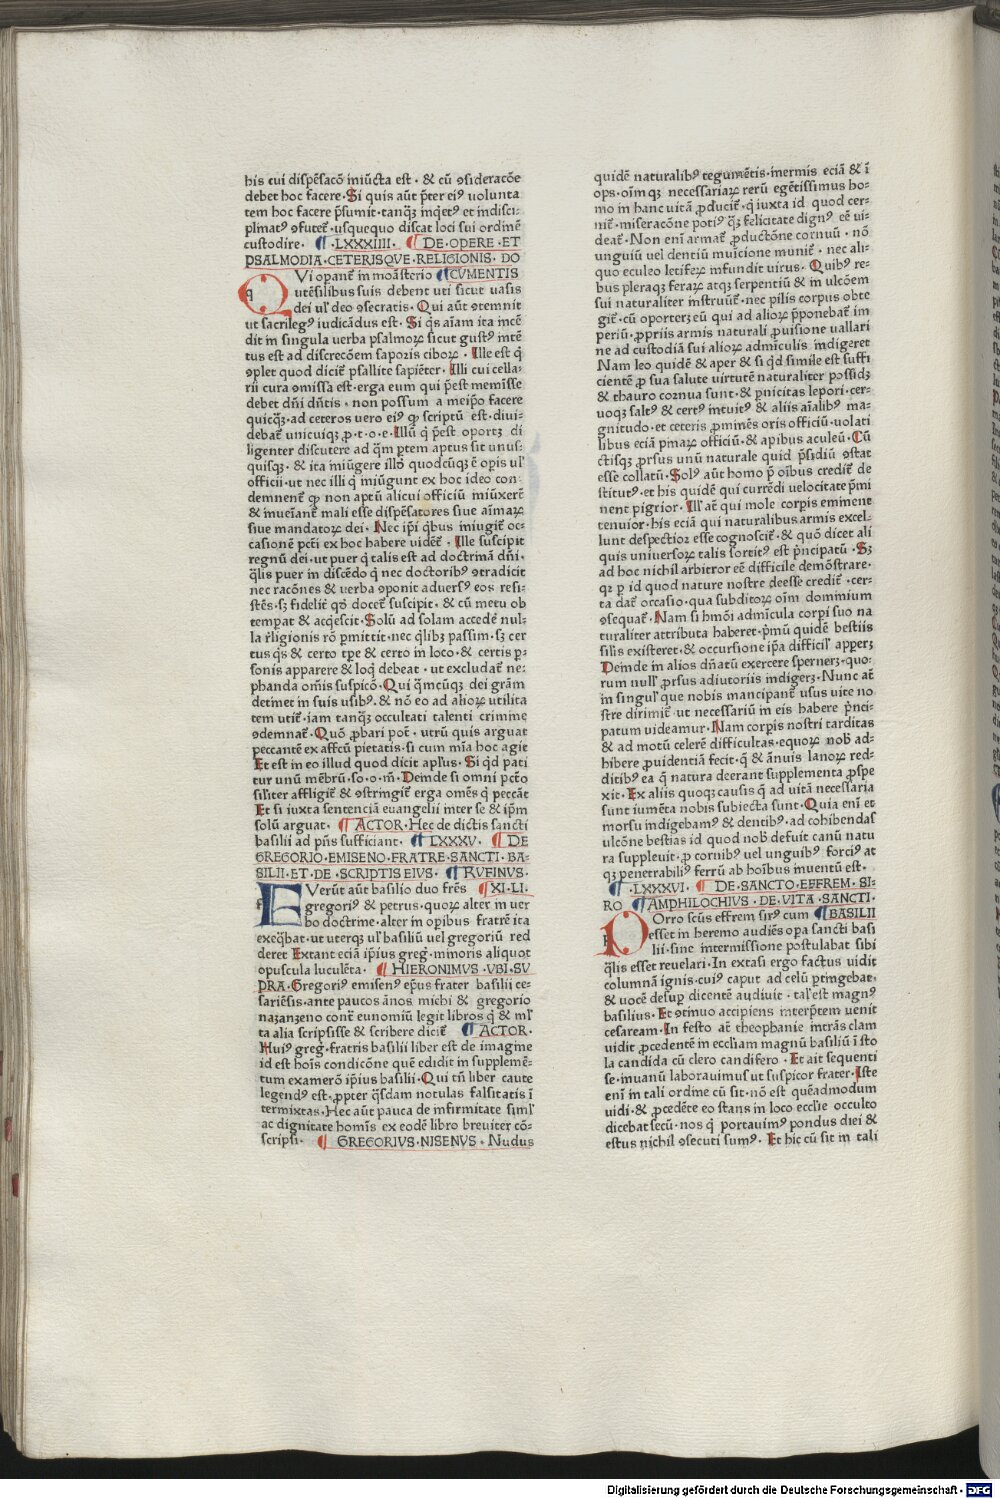 his cui dispēsacō iniūcta est · & cū ꝯsideracōe
debet hoc facere · Si quis aūt p̄ter eiꝰ uolunta
tem hoc facere p̄sumit · tanqꝫ inq̇etꝰ et indisci-
plinatꝰ ꝯfutet᷑ · usquequo discat loci sui ordinē
custodire · ¶ · LXXXIIII · ¶ DE · OPERE · ET
PSALMODIA · CETERISQVE · RELIGIONIS · DO
QVi opant᷑ in monāsterio ¶CVMENTIS
utēsilibus suis debent uti sicut uasis
dei ul᷑ deo ꝯsecratis · Qui aūt ꝯtemnit
ut sacrilegꝰ iudicādus est · Si q̇s aīam ita intē
dit in singula uerba psalmoꝝ sicut gustꝰ intē
tus est ad discrecōem saporis ciboꝝ · Ille est q̇
ꝯplet quod dicit᷑ psallite sapiēter · Illi cui cella-
rii cura ꝯmissa est · erga eum qui p̄est meminisse
debet dn̄i dn̄tis · non possum a meip̄o facere
quicqꝫ · ad ceteros uero eiꝰ ꝙ scriptū est · diui-
debat᷑ unicuiqꝫ ꝓ · t · o · e · Illū q̇ p̄est oportꝫ di
ligenter discutere ad q̄m ꝑtem aptus sit unus-
quisqꝫ · & ita iniūgere illō quodcūqꝫ ē opis ul᷑
officii · ut nec illi q̇ iniūgunt ex hoc ideo con-
demnent᷑ ꝙ non aptū alicui officiū iniūxerē
& inueiant᷑ mali esse dispēsatores siue aīmaꝝ
siue mandatoꝝ dei · Nec ip̄i q̇bus iniugit᷑ oc-
casionē pc̄ti ex hoc habere uidēt᷑ · Ille suscipit
regnū dei · ut puer q̇ talis est ad doctrinā dn̄i ·
q̇lis puer in discēdo q̇ nec doctoribꝰ ꝯtradicit
nec racōnes & uerba ꝯponit aduersꝰ eos resi-
stēs · sꝫ fidelit᷑ qō docet᷑ suscipit · & cū metu ob
temꝑat & acq̇escit · Solū ad solam accedē nul-
la r̄ligionis rō pmittit · nec q̇libꝫ passim · sꝫ cer
tus q̇s & certo tp̄e & certo in loco · & certis ꝑ-
sonis apparere & loq̇ debeat · ut excludat᷑ ne-
phanda om̄is suspicō · Qui q̄mcūqꝫ dei grām
detinet in suis usibꝰ · & nō eo ad alioꝝ utilita
tem utit᷑ · iam tanqꝫ occultati talenti crimine
ꝯdemnat᷑ · Quō ꝓbari pot᷑ · utrū quis arguat
peccantē ex affcū pietatis · si cum mīa hoc agit
Et est in eo illud quod dicit apl᷑us · Si q̇d pati
tur unū mēbrū · so · o · m̄ · Deinde si omni pctō
sil᷑iter affligit᷑ & ꝯtringit᷑ erga omēs q̇ peccāt
Et si iuxta sentenciā euangelii inter se & ip̄m
solū arguat · ¶ ACTOR · Hec de dictis sancti
basilii ad pn̄s sufficiant · ¶ LXXXV · ¶ DE
GREGORIO · EMISENO · FRATRE · SANCTI · BA-
SILII · ET · DE · SCRIPTIS EIVS · ¶ RVFINVS ·
FVerūt aūt basilio duo frēs ¶XI · LI ·
gregoriꝰ & petrus · quoꝝ alter in uer
bo doctrine · alter in opibus fratrē ita
exeq̄bat · ut uterqꝫ ul᷑ basiliū uel gregoriū red
deret Extant eciā ip̄ius greg᷑ · minoris aliquot
opuscula luculēta · ¶ HIERONIMVS · VBI · SV
PRA · Gregoriꝰ emisenꝰ ep̄us frater basilii ce-
sariēsis · ante paucos ānos michi & gregorio
nazanzeno cont᷑ eunomiū legit libros q̇ & ml᷑
ta alia scripsisse & scribere dicit᷑ ¶ ACTOR ·
Huiꝰ greg · fratris basilii liber est de imagine
id est hoīs condicōne quē edidit in supplemē-
tum examerō ip̄ius basilii · Qui tn̄ liber caute
legendꝰ est · ꝓpter q̄sdam notulas falsitatis ī
termixtas · Hec aūt pauca de infirmitate siml᷑
ac dignitate hominis ex eodē libro breuiter cō-
scripsi · ¶ GREGORIVS · NISENVS · Nudus
quidē naturalibꝰ tegumētis · inermis eciā & ī
ops · oīm qꝫ necessariaꝝ rerū egētissimus ho-
mo in hanc uitā ꝓducit᷑ · q̇ iuxta id quod cer-
nit᷑ · miseracōne potiꝰ qꝫ felicitate dignꝰ eē ui-
deat᷑ · Non enī armat᷑ ꝓductōne cornuū · nō
unguiū uel dentiū muīcione munit᷑ · nec ali-
quo eculeo letifeꝝ infundit uirus · Quibꝰ re-
bus pleraqꝫ feraꝝ atqꝫ serpentiū & in ulcōem
sui naturaliter instruūt᷑ · nec pilis corpus obte
git᷑ · cū oporterꝫ eū qui ad alioꝝ p̄ponebat᷑ im
periū · ꝓpriis armis naturali ꝓuisione uallari
ne ad custodiā sui alioꝝ admīculis indigeret
Nam leo quidē & aper & si q̇d simile est suffi
cientē ꝓ sua salute uirtutē naturaliter possidꝫ
& thauro cornua sunt · & p̄nicitas lepori · cer-
uoqꝫ saltꝰ & certꝰ intuitꝰ & aliis aīalibꝰ ma-
gnitudo · et ceteris ꝓminēs oris officiū · uolati
libus eciā pmaꝝ officiū · & apibus aculeū · Cū
ctisqꝫ ꝓrsus unū naturale quid p̄sidiū ꝯstat
esse collatū · Solꝰ aūt homo p̄ oībus credit᷑ de
stitutꝰ · et his quidē qui currēdi uelocitate p̄mi
nent pigrior · Ill᷑ at᷑ qui mole corpis eminent
tenuior · his eciā qui naturalibus armis excel-
lunt despectior esse cognoscit᷑ · & quō dicet ali
quis uniuersoꝝ talis sortitꝰ est p̄ncipatū · Sꝫ
ad hoc nichil arbitror eē difficile demōstrare ·
qꝛ ꝑ id quod nature nostre deesse credit᷑ · cer-
ta dat᷑ occasio · qua subditoꝝ oīm dominium
ꝯsequat᷑ · Nam si hmōi admīcula corpi suo na
turaliter attributa haberet · p̄mū quidē bestiis
silis existeret · & occursione ip̄a difficil᷑ apperꝫ
Deinde in alios dn̄atū exercere spernerꝫ · quo-
rum null᷑ ꝓrsus adiutoriis indigerꝫ · Nunc at᷑
in singul᷑ que nobis mancipant᷑ usus uite no
stre dirimit᷑ ut necessariū in eis habere p̄nci-
patum uideamur · Nam corpis nostri tarditas
& ad motū celerē difficultas · equoꝝ nob᷑ ad-
hibere ꝓuidenciā fecit · q̇ & ānuis lanoꝝ red-
ditibꝰ ea q̇ natura deerant supplementa ꝓspe
xit · Ex aliis quoqꝫ causis q̇ ad uitā necessaria
sunt iumēta nobis subiecta sunt · Quia enī et
morsu indigebamꝰ & dentibꝰ · ad cohibendas
ulcōne bestias id quod nob᷑ defuit canū natu
ra suppleuit · ꝓ cornibꝰ uel unguibꝰ forciꝰ at
qꝫ penetrabiliꝰ ferrū ab hoībus inuentū est ·
¶ · LXXXVI · ¶ DE · SANCTO · EFFREM · SI-
RO ¶AMPHILOCHIVS · DE · VITA · SANCTI ·
POrro scūs effrem sirꝰ cum ¶BASILII
esset in heremo audiēs opa sancti basi
lii · sine intermissione postulabat sibi
q̇lis esset reuelari · In extasi ergo factus uidit
columnā ignis · cuiꝰ caput ad celū ꝑtingebat ·
& uocē desup dicentē audiuit · tal᷑ est magnꝰ
basilius · Et ꝯtinuo accipiens interp̄tem uenit
cesaream · In festo at᷑ theophanie intrās clam
uidit ꝓcedentē in eccl᷑iam magnū basiliū ī sto
la candida cū clero candifero · Et ait sequenti
se · inuanū laborauimus ut suspicor frater · Iste
enī in tali ordine cū sit · nō est quēadmodum
uidi · & ꝓcedēte eo stans in loco eccl᷑ie occulto
dicebat secū · nos q̇ portauimꝰ pondus diei &
estus nichil ꝯsecuti sumꝰ · Et hic cū sit in tali
Digitalisierung gefördert durch die Deutsche Forschungsgemeinschaft - DFG